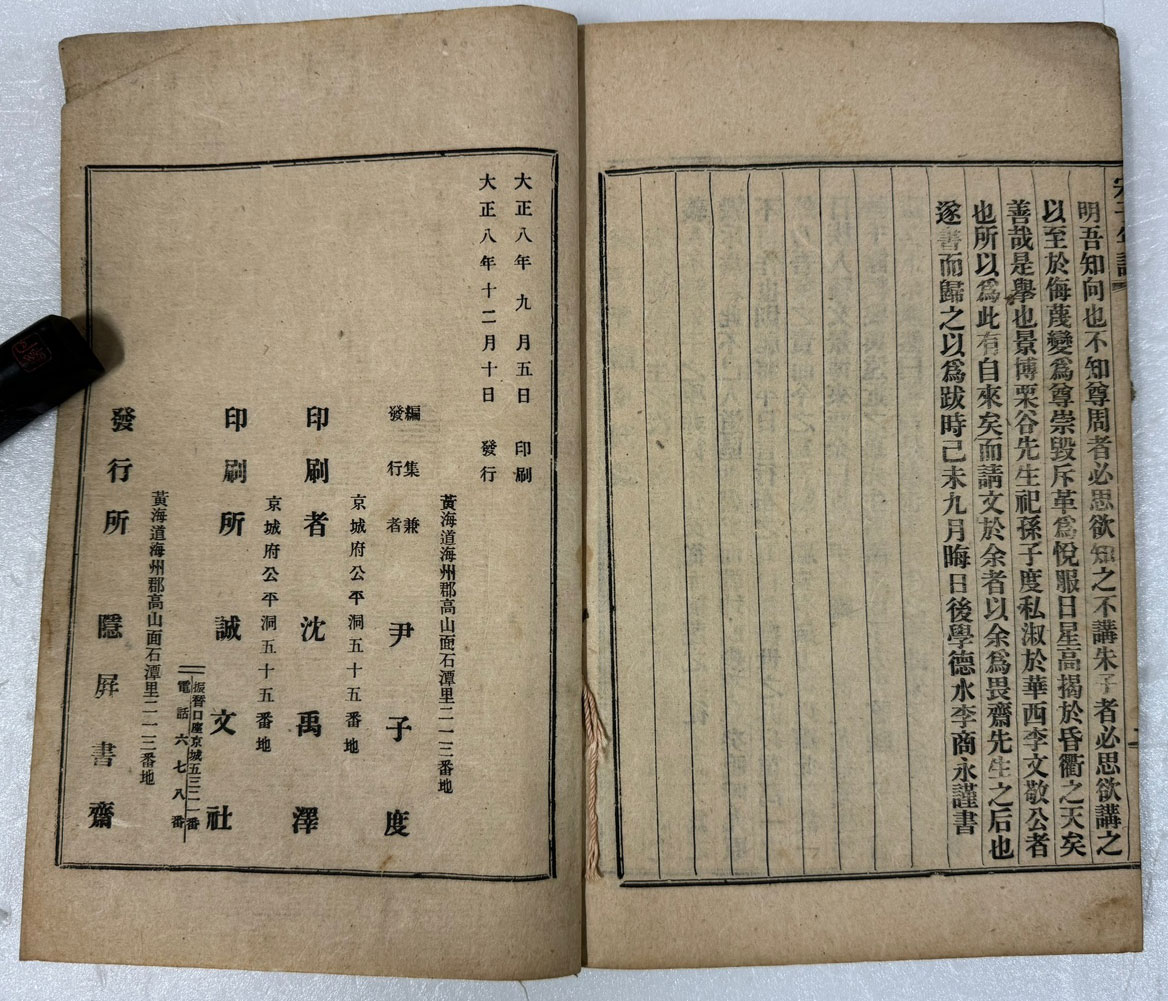 明吾知向也不知尊周者必思欲知之不講朱子者必思欲講之
以至於侮蔑變爲尊崇毀斥革爲悅服日星高揭於昏衢之天矣
善哉是舉也景博栗谷先生祀孫子度私淑於華西李文敬公者
也所以爲此有自來矣而請文於余者以余爲畏齋先生之后也
遂書而歸之以爲跋時己未九月晦日後學德水李商永謹書
大正八年九月五日 印刷
大正八年十二月十日 發行
黃海道海州郡高山面石潭里二一三番地
編集兼
發行者 尹子度
京城府公平洞五十五番地
印刷者 沈禹澤
京城府公平洞五十五番地
印刷所 誠文社
振替口座京城五三二一番
電話六七八番
黃海道海州郡高山面石潭里二一三番地
發行所 隱屛書齋